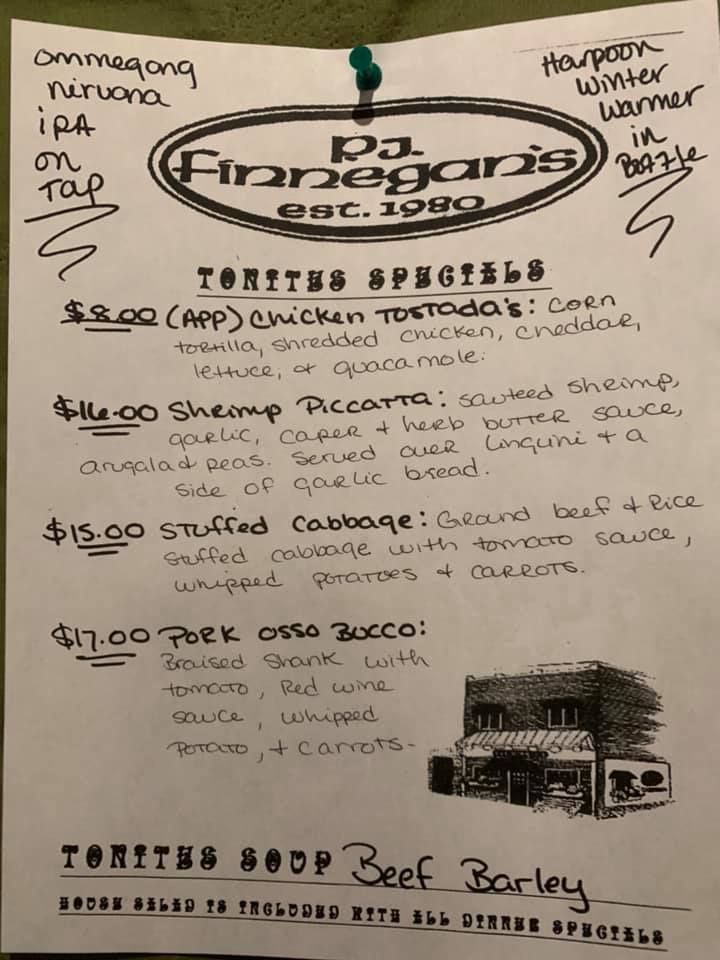 ommegang
nirvana
iPA
on
TAP
Harpoon
Winter
Warmer
in
Bottle
P.J.
Finnegan's
est. 1980
TONITES SPECIALS
$8.00 (APP) Chicken Tostada's: Corn
tortilla, shredded chicken, cheddar,
lettuce, & guacamole.
$16.00 Shrimp Piccatta: sauteed shrimp,
garlic, caper & herb butter sauce,
arugala & peas. Served over linguini & a
side of garlic bread.
$15.00 Stuffed Cabbage: Ground beef & Rice
stuffed cabbage with tomato sauce,
whipped potatoes & carrots.
$17.00 Pork Osso Bucco:
Braised shank with
tomato, Red wine
sauce, whipped
potato, & carrots-
TONITES SOUP Beef Barley
HOUSE SALAD IS INCLUDED WITH ALL DINNER SPECIALS